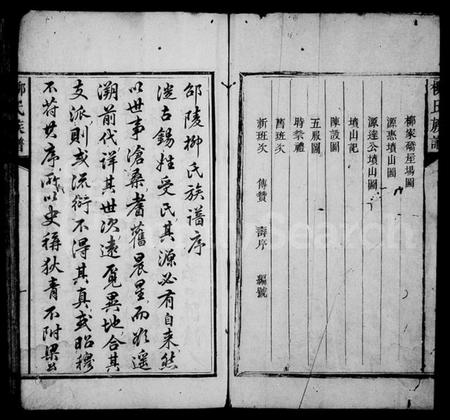 柳氏族譜
柳家礄屋場圖
源惠墳山圖
源達公墳山圖
墳山記
陳設圖
五服圖
時祭禮
舊班次
新班次 傳贊 壽序 編號
邵陵柳氏族譜序
遂古錫姓受氏其源必有自来然
以世事滄桑耆舊晨星而欲遥
溯前代详其世次遠覓異地合其
支派則或流衍不得其真或昭穆
不符其序所以史稱狄青不附梁公
柳氏族譜